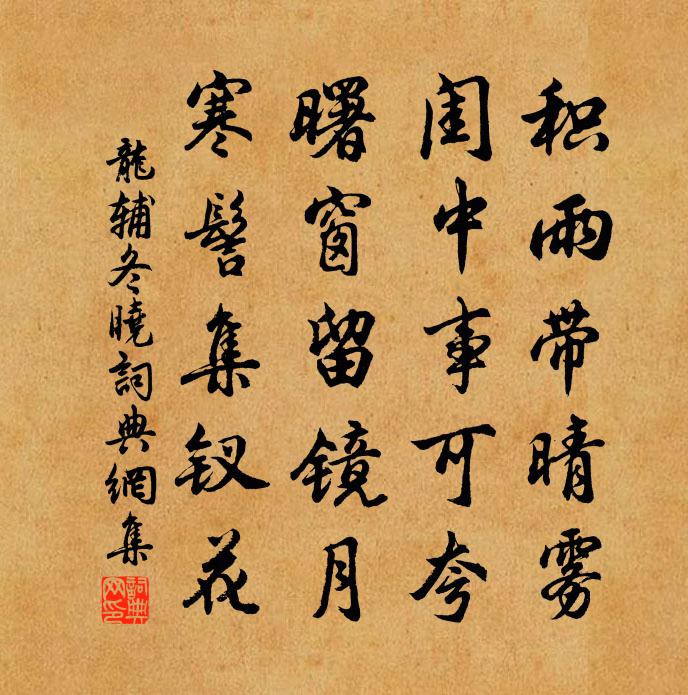 积雨带晴雾
闺中事可夸
曙窗留镜月
寒髻集钗花
龍辅冬曉詞典網集
詞典网印